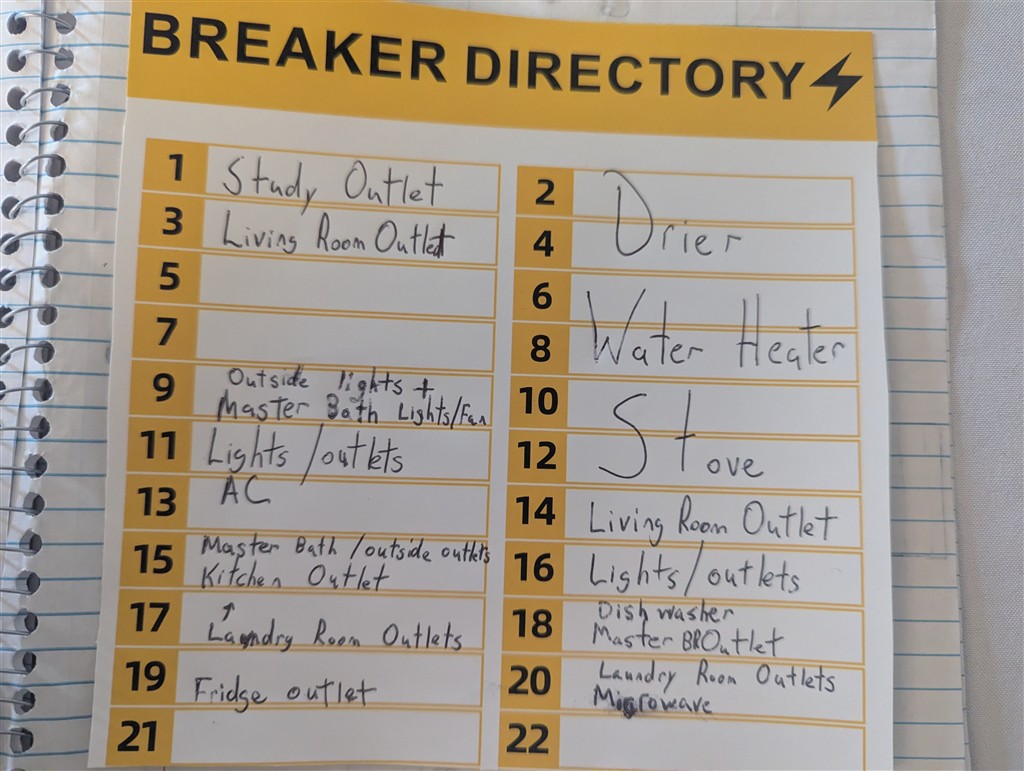 BREAKER DIRECTORY
1 Study Outlet
3 Living Room Outlet
5
7
9 Outside lights +
Master Bath Lights/Fan
11 Lights/outlets
13 AC
15 Master Bath/outside outlets
Kitchen Outlet
17 ↑
Laundry Room Outlets
19 Fridge outlet
21
2
4 Drier
6
8 Water Heater
10
12 Stove
14 Living Room Outlet
16 Lights/outlets
18 Dishwasher
Master BROutlet
20 Laundry Room Outlets
Microwave
22